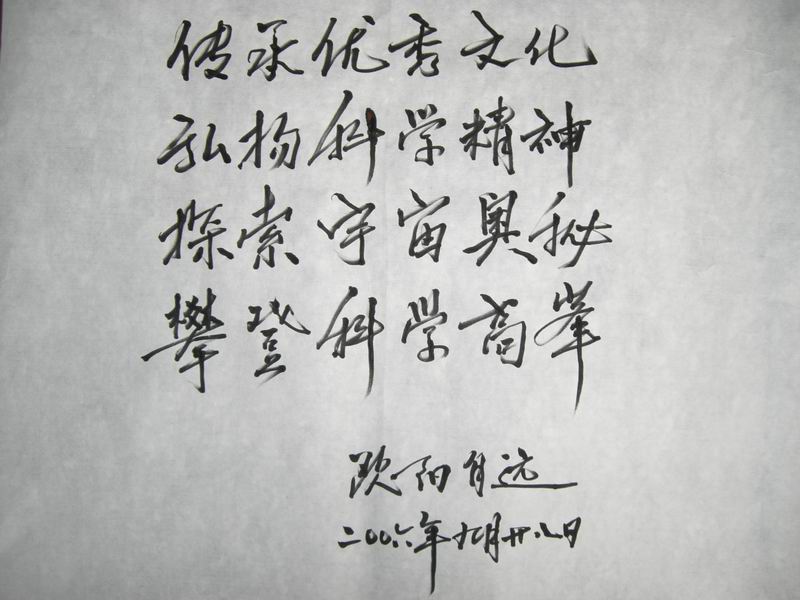 传承优秀文化
弘扬科学精神
探索宇宙奥秘
攀登科学高峰
欧阳自远
二00六年九月廿八日